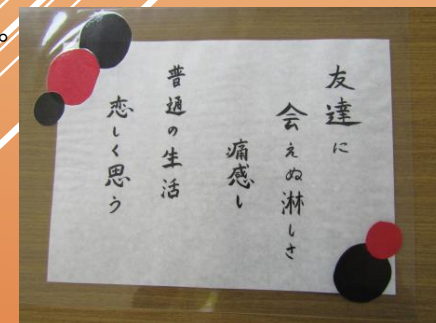 友達に
会えぬ淋しさ
痛感し
普通の生活
恋しく思う